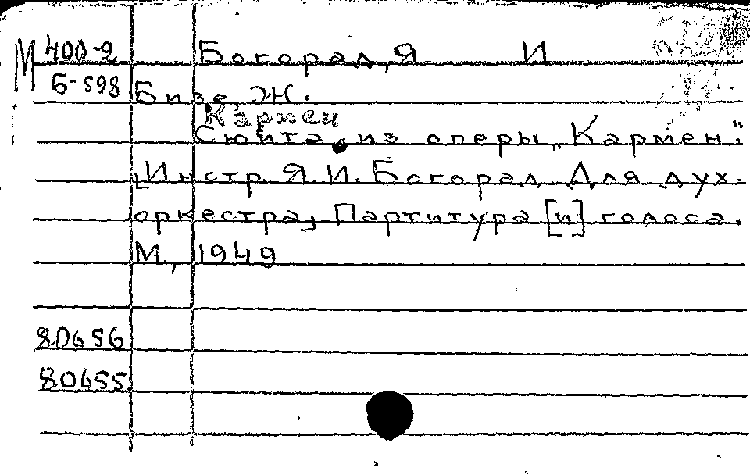 М 400-2 Богорад, Я И
Б-598 Бизе Ж.
Кармен
Сюита из оперы „Кармен".
[Инстр. Я.И. Богорад. Для дух.
оркестра, Партитура [и] голоса.
М., 1949
80656
80655